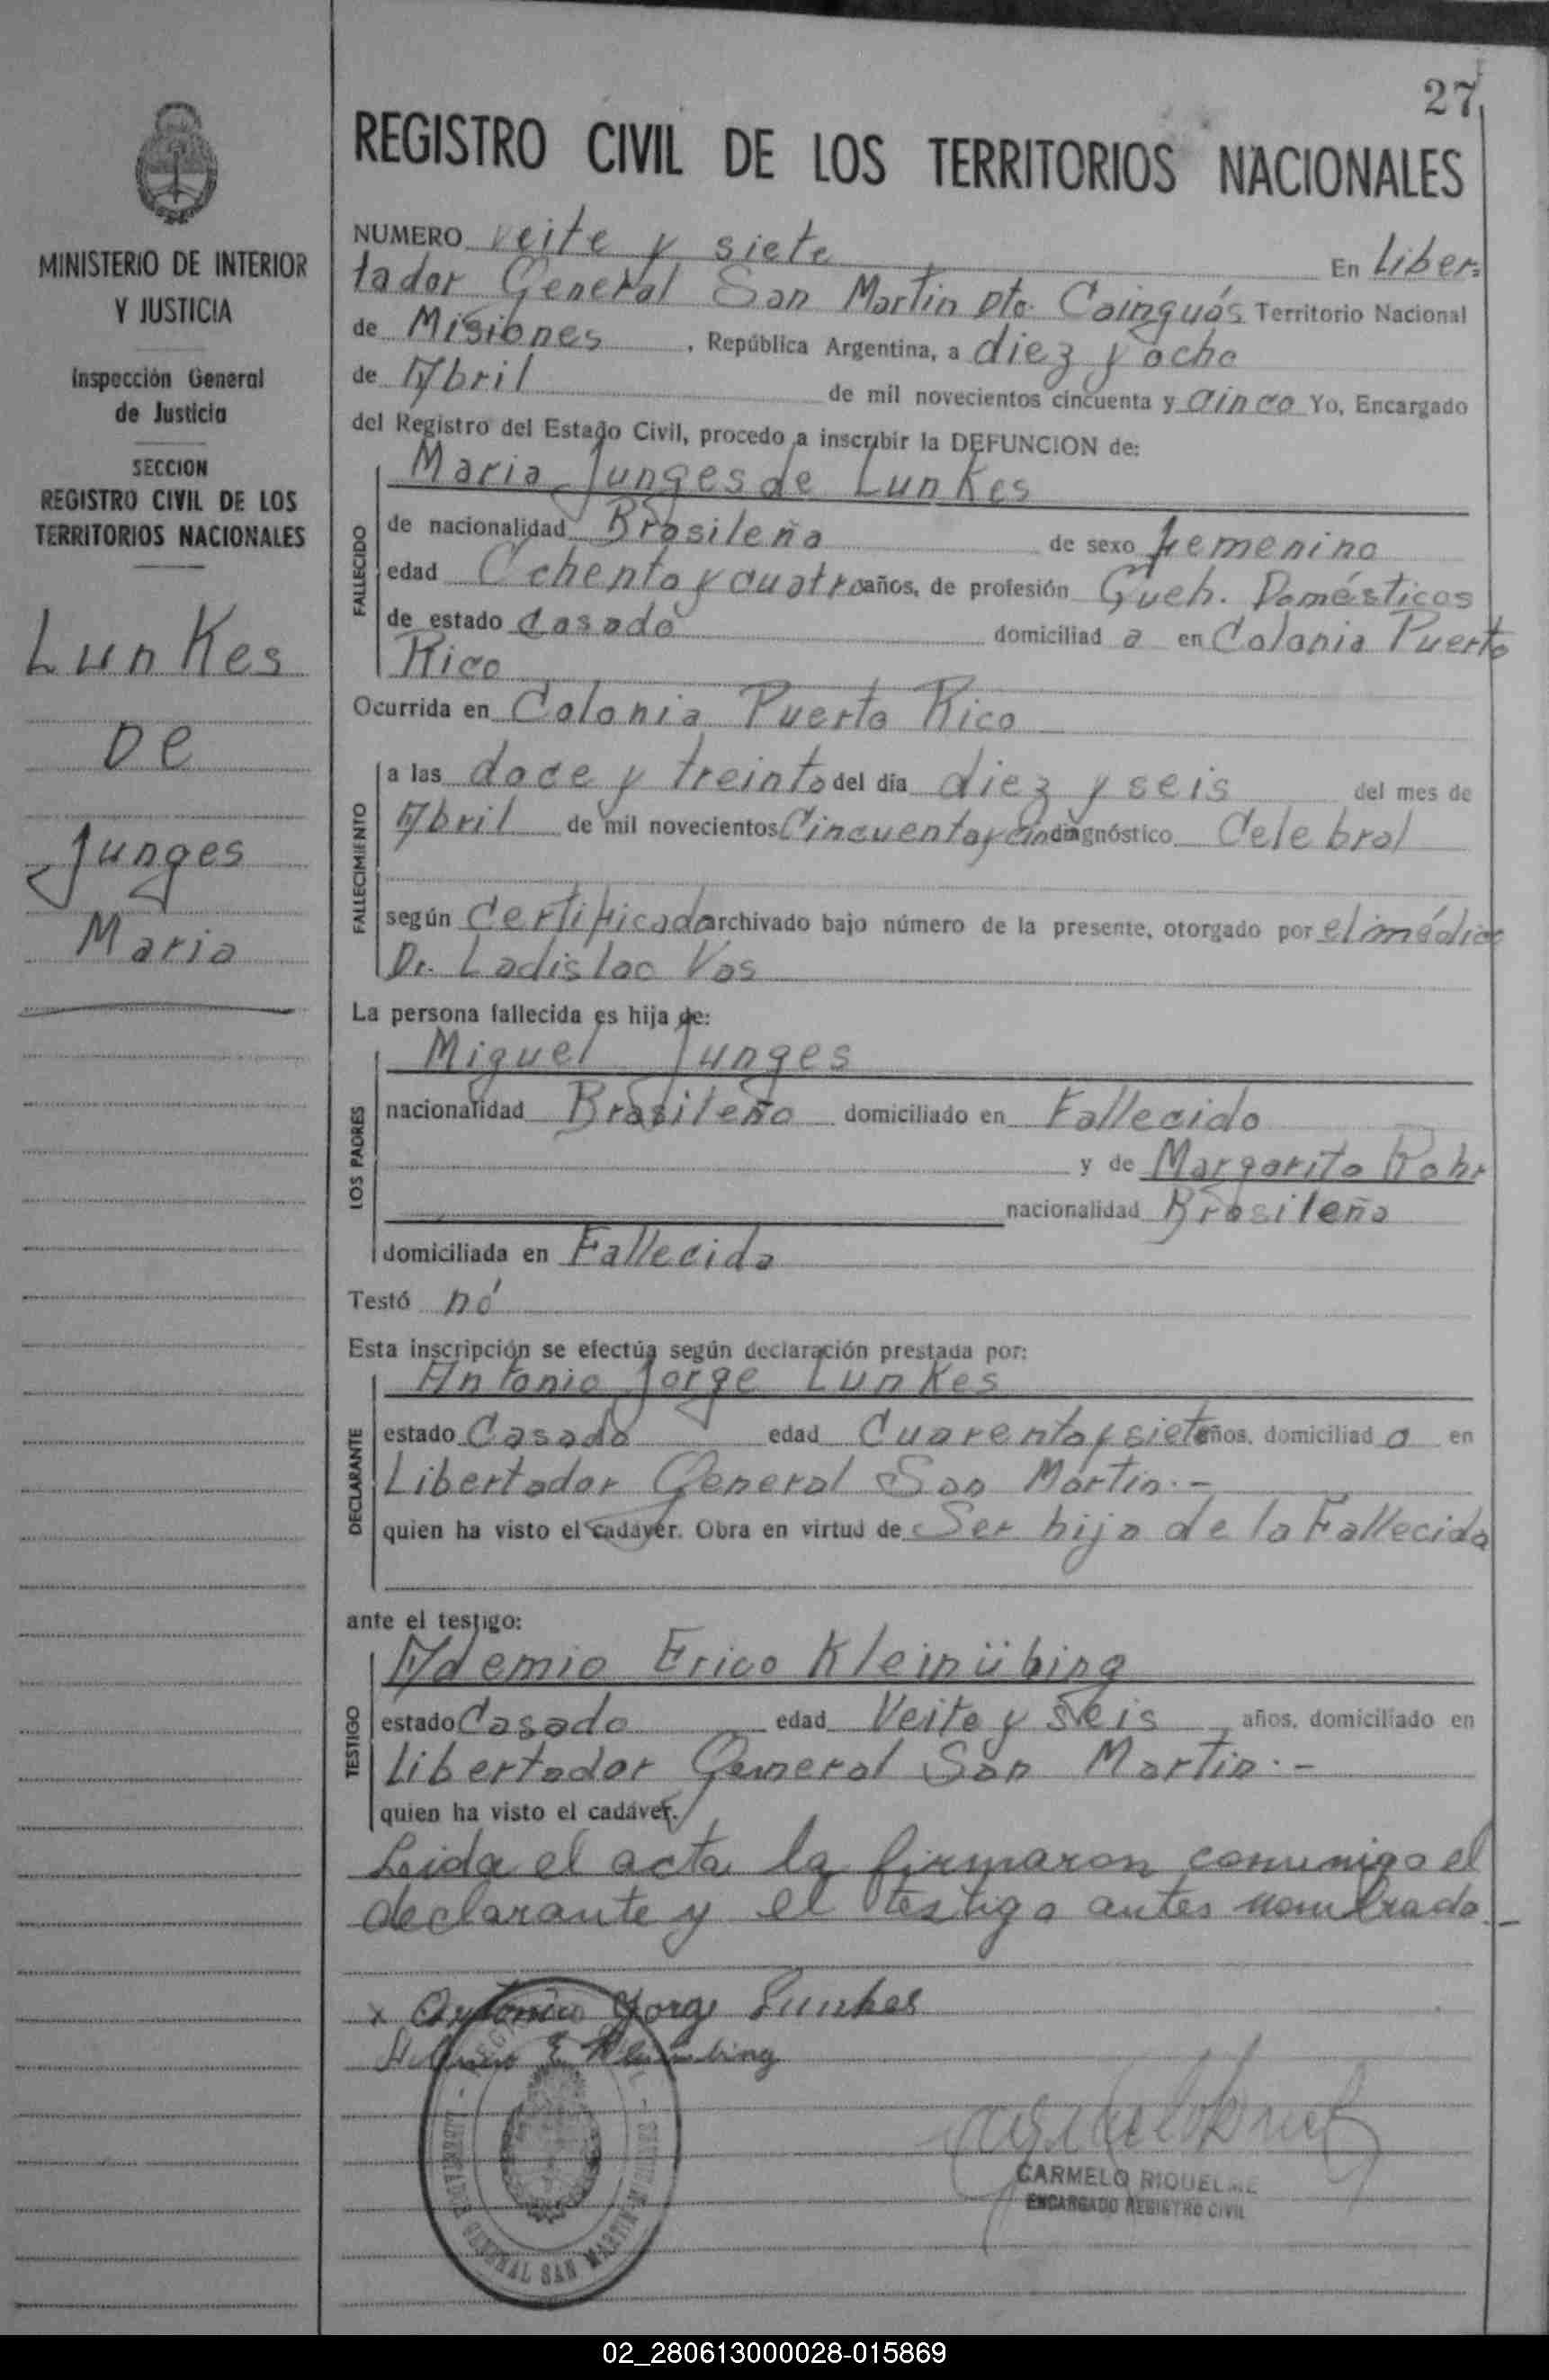 27
REGISTRO CIVIL DE LOS TERRITORIOS NACIONALES
MINISTERIO DE INTERIOR
Y JUSTICIA
Inspección General
de Justicia
SECCION
REGISTRO CIVIL DE LOS
TERRITORIOS NACIONALES
LunKes
De
Junges
Maria
NUMERO veite y siete En Liber=
tador General San Martin Dto. Cainguás Territorio Nacional
de Misiones, República Argentina, a diez y ocho
de Abril de mil novecientos cincuenta y Cinco Yo, Encargado
del Registro del Estado Civil, procedo a inscribir la DEFUNCION de:
FALLECIDO
Maria Junges de LunKes
de nacionalidad Brasileña de sexo femenino
edad Ochenta y cuatro años, de profesión Queh. Domésticos
de estado Casada domiciliad a en Colonia Puerto
Rico
Ocurrida en Colonia Puerto Rico
FALLECIMIENTO
a las doce y treinta del día diez y seis del mes de
Abril de mil novecientos Cincuenta y Cin diagnóstico Celebral
según Certificado archivado bajo número de la presente, otorgado por el médico
Dr. Ladislao Vas
La persona fallecida es hija de:
LOS PADRES
Miguel Junges
nacionalidad Brasileño domiciliado en Fallecido
y de Margarita Rohr
nacionalidad Brasileña
domiciliada en Fallecida
Testó nó
Esta inscripción se efectúa según declaración prestada por:
DECLARANTE
Antonio Jorge LunKes
estado Casado edad Cuarenta y siete años, domiciliad o en
Libertador General San Martin.-
quien ha visto el cadáver. Obra en virtud de Ser hijo de la Fallecida
ante el testigo:
TESTIGO
Ademio Erico Kleinübing
estado Casado edad Veite y Seis años, domiciliado en
Libertador General San Martin.-
quien ha visto el cadáver.
Leida el acta la firmaron conmigo el
declarante y el testigo antes nombrado.-
x Antonio Jorge Lunkes
E. Kleinübing
LIBERTADOR GENERAL SAN MARTIN - MISIONES -
CARMELO RIQUELME
ENCARGADO REGISTRO CIVIL
02_280613000028-015869